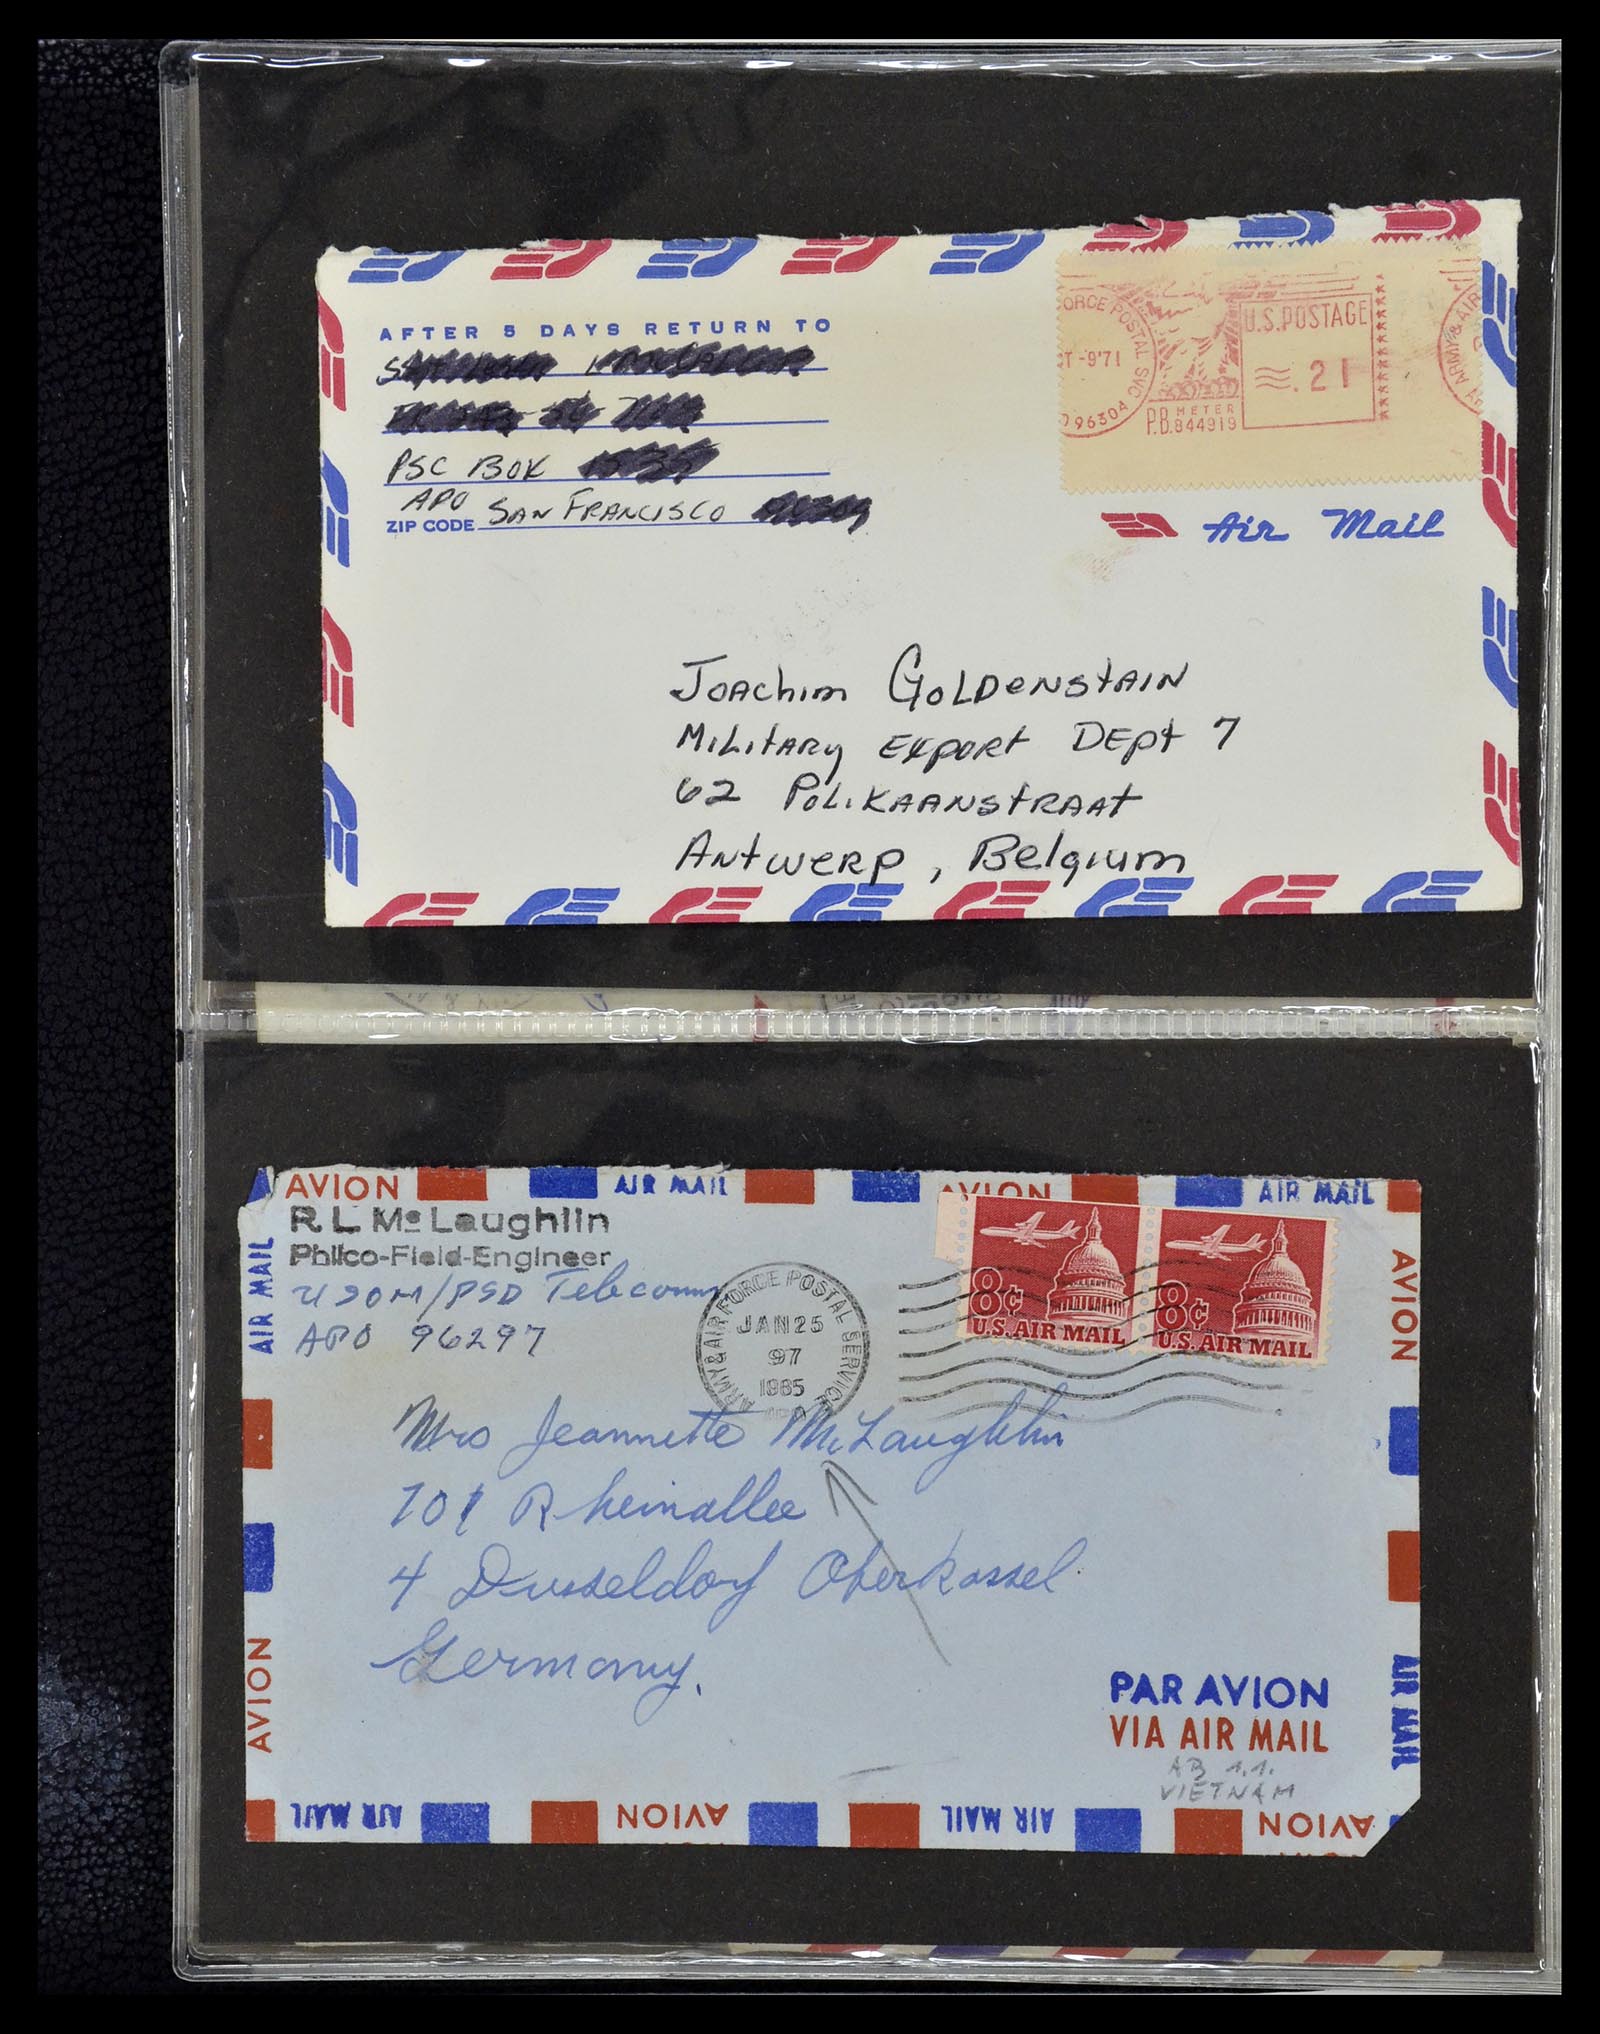 AFTER 5 DAYS RETURN TO
PSC BOX
APO
ZIP CODE SAN FRANCISCO
ORCE POSTAL SVC
T -9'71
96304
U.S. POSTAGE
.21
P.B. METER
P.B. 844919
ARMY & AIR
Air Mail
JOACHIM GOLDENSTAIN
MILITARY EXPORT DEPT 7
62 POLIKAANSTRAAT
ANTWERP, BELGIUM
AVION AIR MAIL AVION AIR MAIL
R. L. Mc Laughlin
Philco-Field-Engineer
USOM/PSD Telecomm
APO 96297
ARMY & AIR FORCE POSTAL SERVICE
JAN 25
97
1965
APO
8¢
U.S. AIR MAIL
8¢
U.S. AIR MAIL
AIR MAIL
AVION
Mrs Jeannette McLaughlin
101 Rheinallee
4 Dusseldorf Oberkassel
Germany.
AVION
AIR MAIL
PAR AVION
VIA AIR MAIL
AB 1.1.
VIETNAM
AIR MAIL AVION AIR MAIL AVION